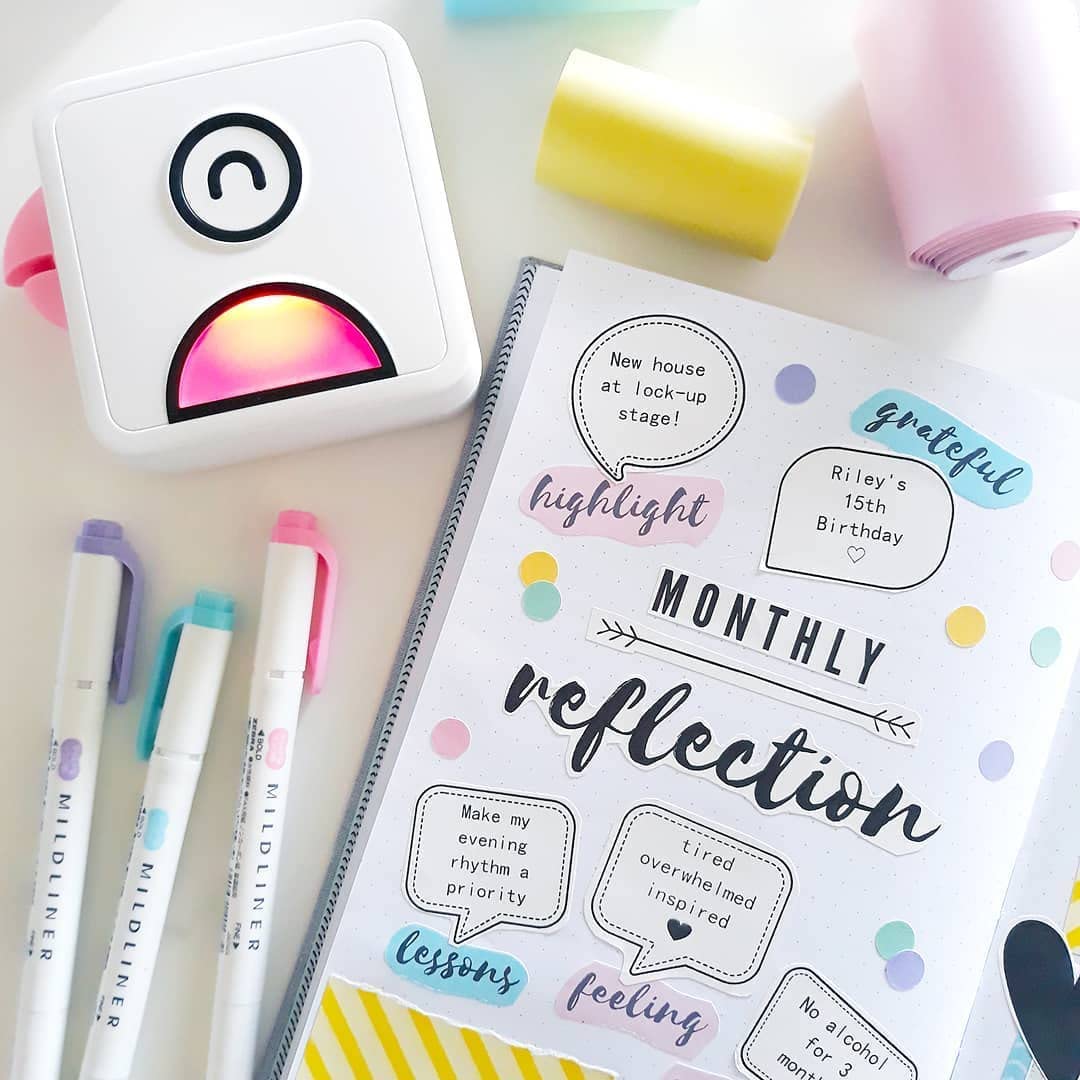 New house
at lock-up
stage!
highlight
grateful
Riley's
15th
Birthday
MONTHLY
reflection
Make my
evening
rhythm a
priority
lessons
tired
overwhelmed
inspired
feeling
No alcohol
for 3
MILDLINER
MILDLINER
BOLD
ZEBRA
MILDLINER
FINE